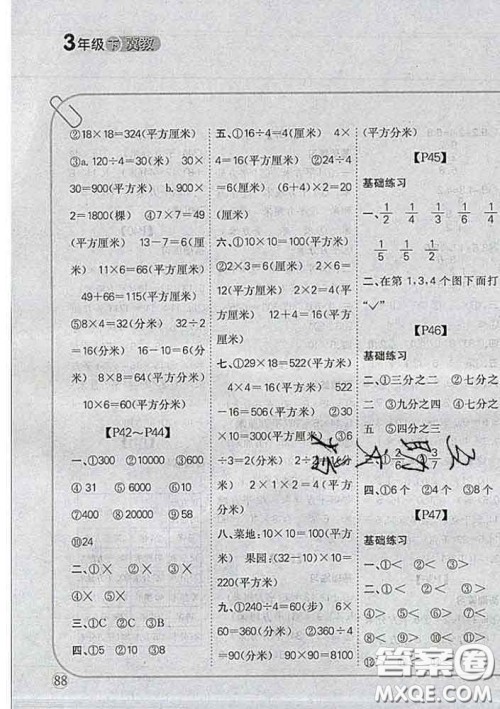 3年级 下 冀教
②18×18=324(平方厘米)
③a. 120÷4=30(米) 30×
30=900(平方米) b. 900×
2=1800(棵) ④7×7=49
(平方厘米) 13-7=6(厘
米) 11×6=66(平方厘米)
49+66=115(平方厘米)
⑤8×4=32(分米) 32÷2
=16(分米) 16-10=6(分
米) 8×8=64(平方分米)
10×6=60(平方分米)
【P42~P44】
一、①100 ②10000 ③600
④31 ⑤5 ⑥6000
⑦400 ⑧20000 ⑨58
⑩24
二、①× ②× ③×
④× ⑤×
三、①C ②C ③B
四、①5 ②10 ③50
五、①16÷4=4(厘米) 4×
4=16(平方厘米) ②24÷4
=6(厘米) (6+4)×2=20
(厘米)
六、①10×10=100(平方厘米)
②2×3=6(厘米) 2×6=
12(厘米) 2×2=4(平方厘
米) 12+4=16(平方厘米)
七、①29×18=522(平方厘米)
4×4=16(平方厘米) 522
-16=506(平方厘米) ③6
÷3=2(分米) 2÷2
(分米) 2×1×2=4(平方
分米)
八、菜地:10×10=100(平方
米) 果园:(32-10)×10=
220(平方米)
九、①240÷4=60(步) 6×
60=360(分米) ②360÷4
=90(分米) 90×90=8100
(平方分米)
【P45】
基础练习
一、1/2 1/4 1/4 1/6
1/5 1/5 1/2
二、在第1,3,4个图下面打
“✓”
【P46】
基础练习
一、①三分之二 ②七分
二、③九分四 ④四分
五 ⑤四分之三
2/6 3/7
四、①6个 ②4个
【P47】
基础练习
一、①< ②> ③
④< ⑤< ⑥
⑦> ⑧< ⑨
⑩> ⑪< ⑫
88
答案卷
MXQE.COM